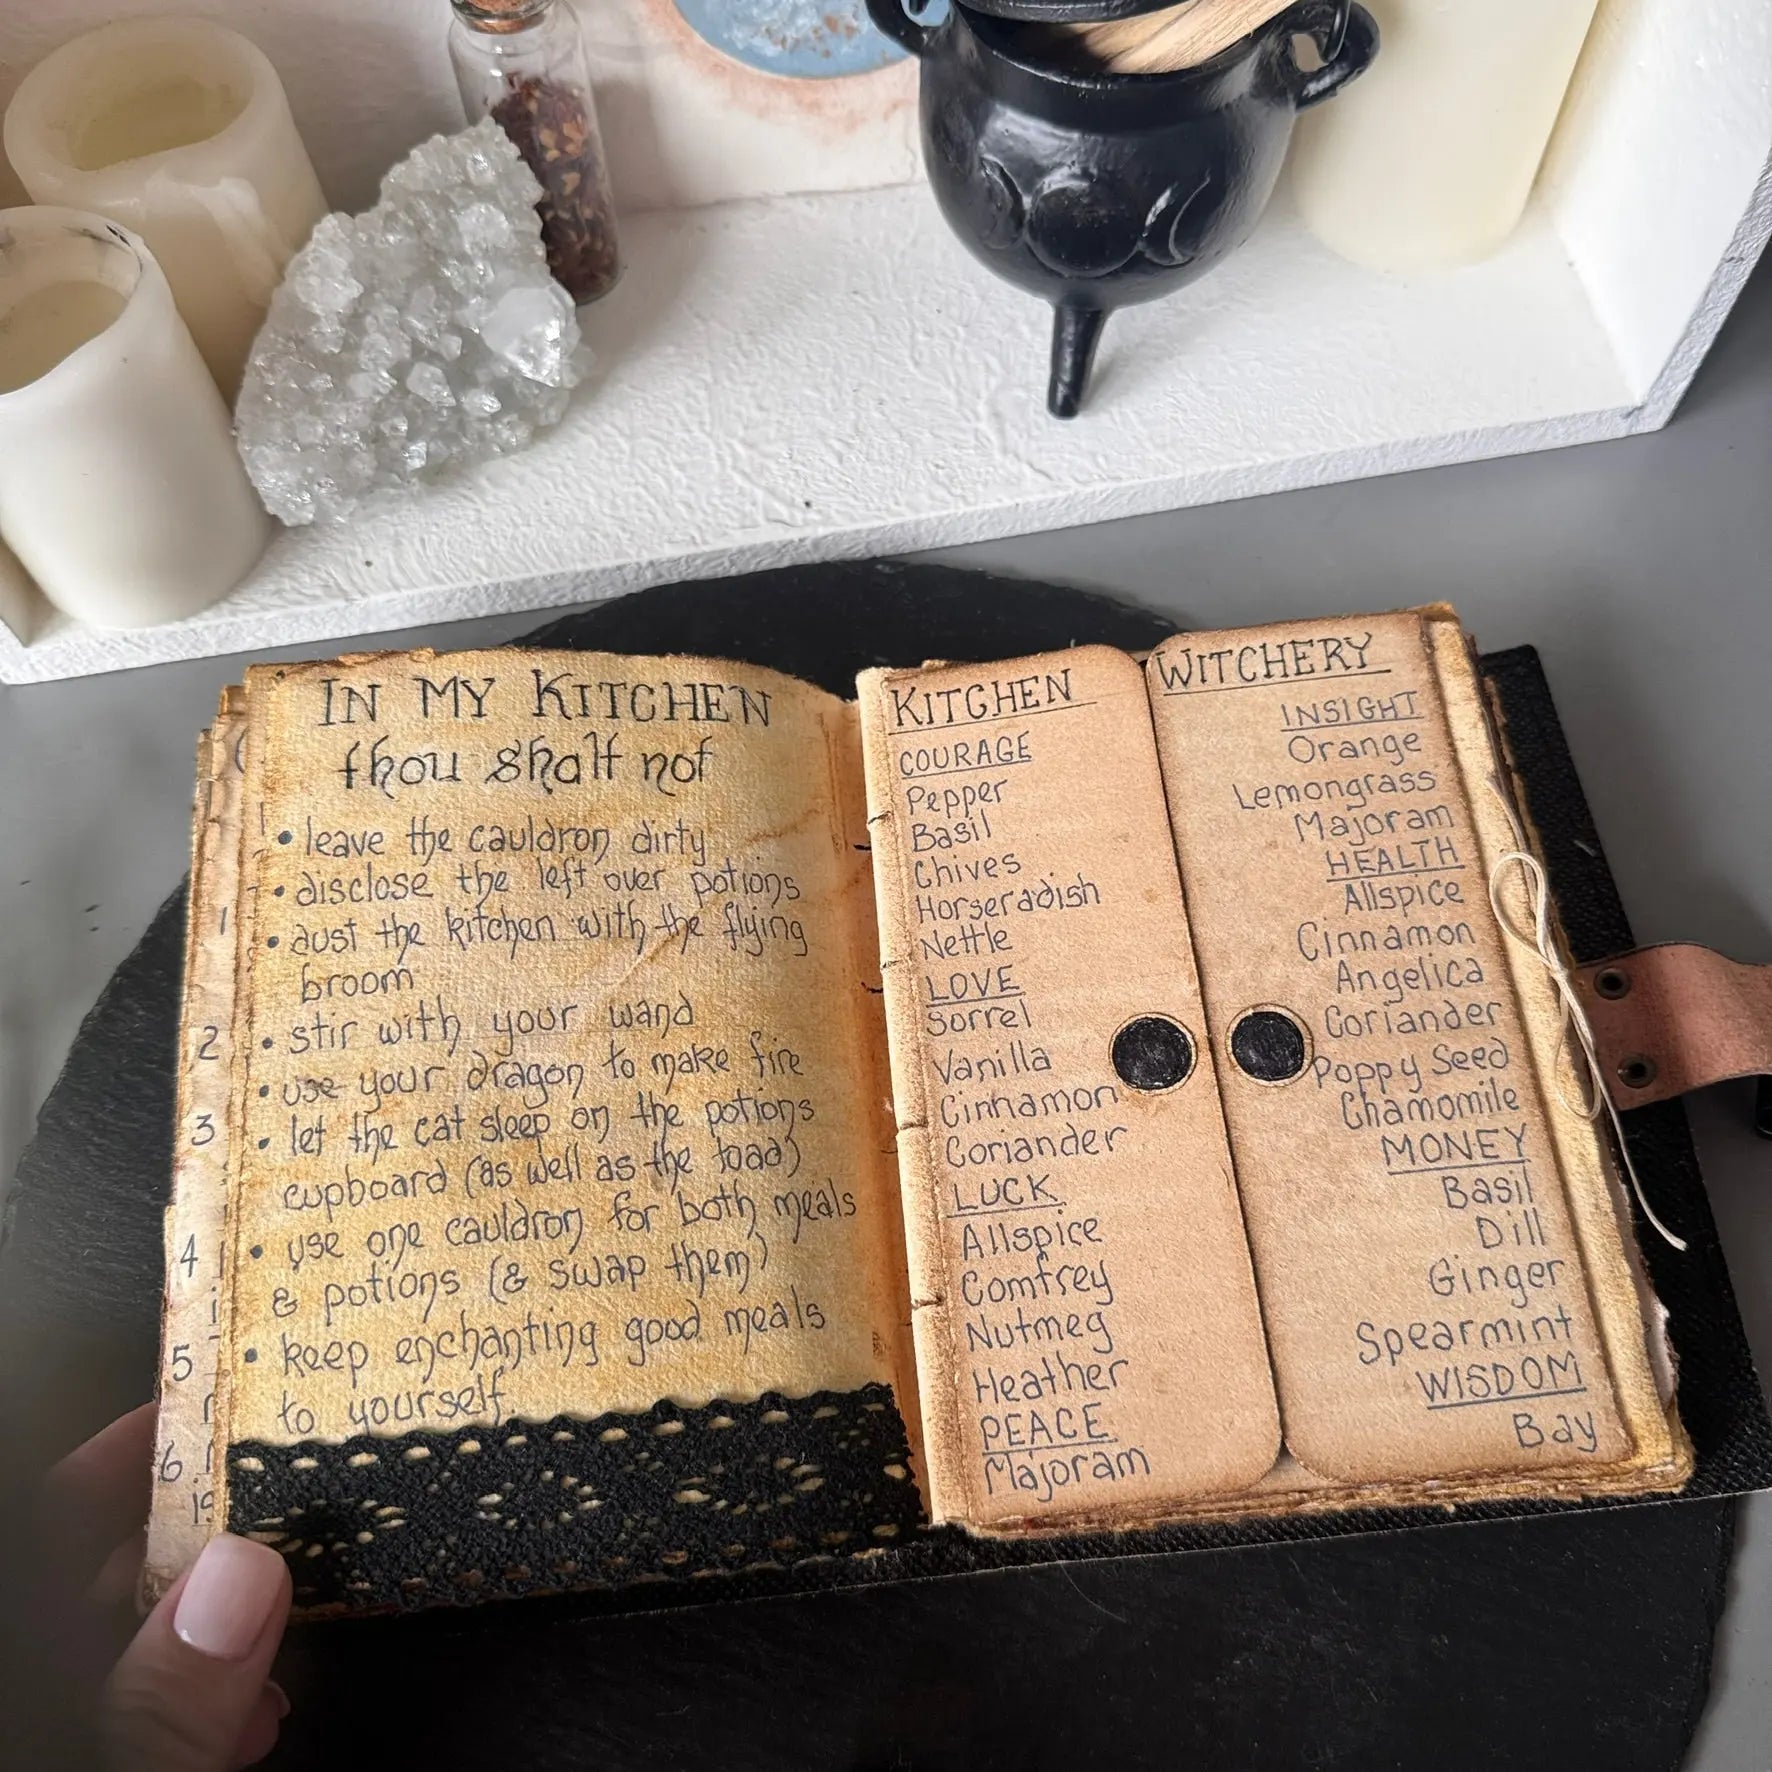 IN MY KITCHEN
thou shalt not
• leave the cauldron dirty
• disclose the left over potions
• dust the kitchen with the flying
broom
• stir with your wand
• use your dragon to make fire
• let the cat sleep on the potions
cupboard (as well as the toad)
• use one cauldron for both meals
& potions (& swap them)
• keep enchanting good meals
to yourself.
1
2
3
4
5
6
KITCHEN
COURAGE
Pepper
Basil
Chives
Horseradish
Nettle
LOVE
Sorrel
Vanilla
Cinnamon
Coriander
LUCK
Allspice
Comfrey
Nutmeg
Heather
PEACE
Majoram
WITCHERY
INSIGHT
Orange
Lemongrass
Majoram
HEALTH
Allspice
Cinnamon
Angelica
Coriander
Poppy Seed
Chamomile
MONEY
Basil
Dill
Ginger
Spearmint
WISDOM
Bay